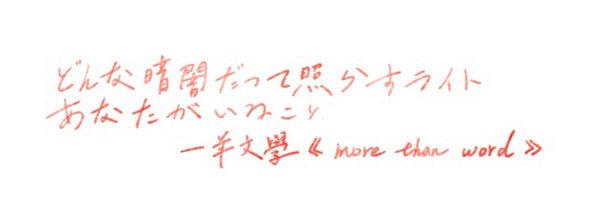 どんな暗闇だって照らすライト
あなたがいねこり
一羊文學《more than word》